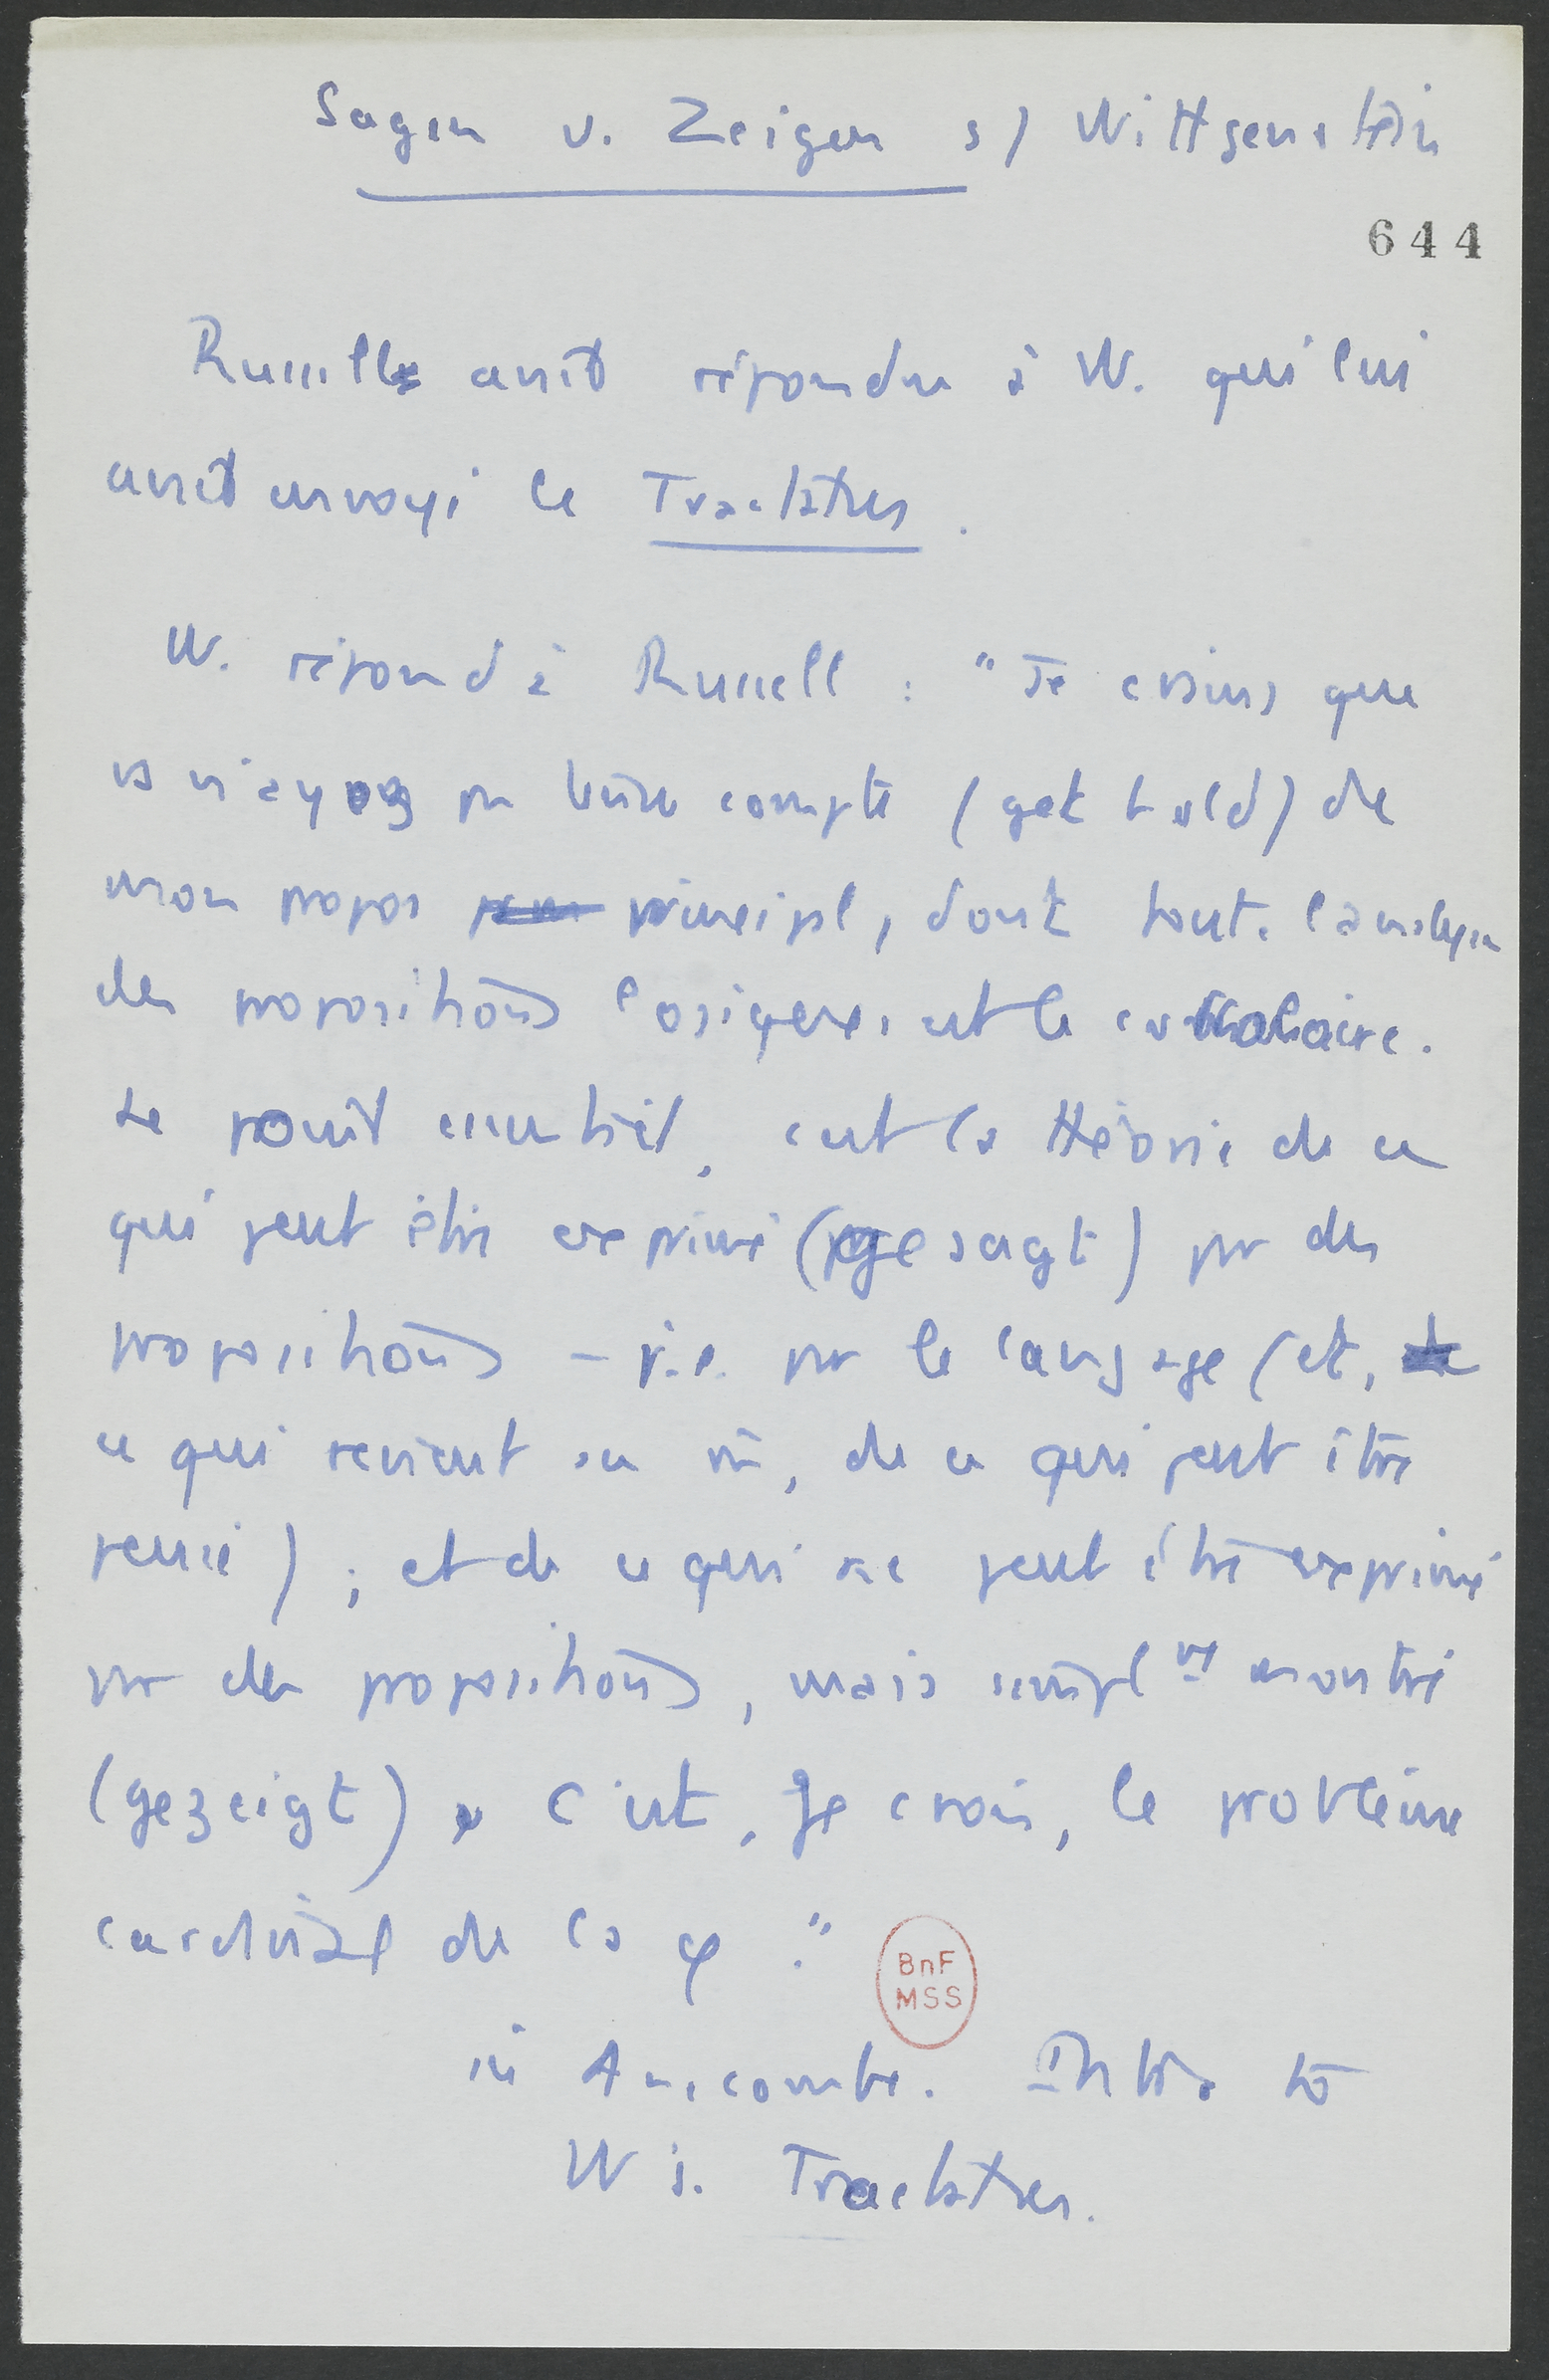 Sagen v. Zeigen s/ Wittgenstein
644
Russell avait répondu à W. qui lui
avait envoyé le Tractatus.
W. répond à Russell : "Je crains que
vs n'ayez pu tenir compte (get hold) de
mon propos principal, dont toute
des propositions logiques est le corollaire.
Le point essentiel, c'est la théorie de ce
qui peut être exprimé (gesagt) par des
propositions – i.e. par le langage (et,
ce qui revient au m̄, de ce qui peut être
pensé) ; et de ce qui ne peut être exprimé
par des propositions, mais simplᵗ montré
(gezeigt). C'est, je crois, le problème
cardinal de la φ."
BnF
MSS
in Anscombe. Intro to
W's. Tractatus.